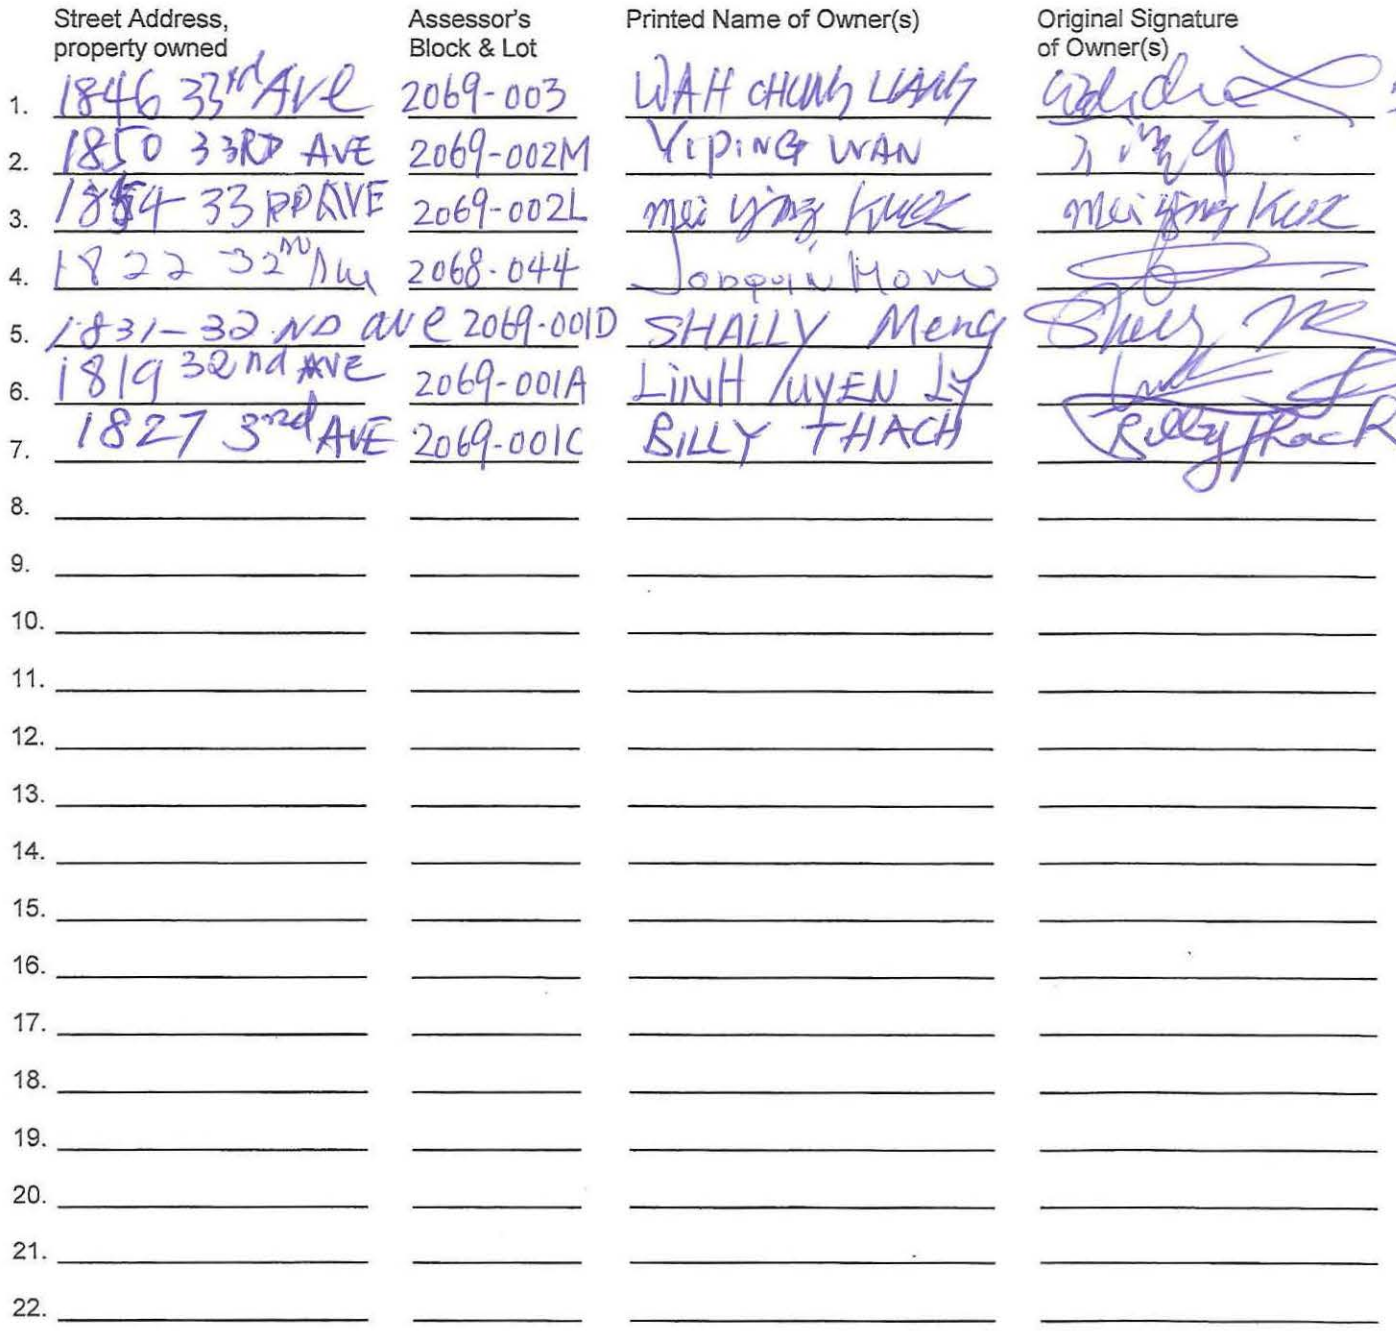 Street Address, Assessor's Printed Name of Owner(s) Original Signature
property owned Block & Lot of Owner(s)
1. 1846 33rd AVe 2069-003 WAH CHUNG LIANG
2. 1850 33RD AVE 2069-002M YIPING WAN
3. 1854 33 RD AVE 2069-002L mei ying KUCK mei ying KUCK
4. 1822 32ND Ave 2068-044 Joaquin
5. 1831-32 ND ave 2069-001D SHALLY Meng
6. 1819 32nd AVE 2069-001A LiNH UYEN LY
7. 1827 32nd AVE 2069-001C BILLY THACH Billy Thach
8.
9.
10.
11.
12.
13.
14.
15.
16.
17.
18.
19.
20.
21.
22.